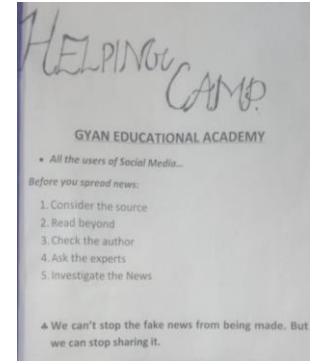 HELPING
CAMP.
GYAN EDUCATIONAL ACADEMY
• All the users of Social Media...
Before you spread news:
1. Consider the source
2. Read beyond
3. Check the author
4. Ask the experts
5. Investigate the News
♣ We can't stop the fake news from being made. But
we can stop sharing it.